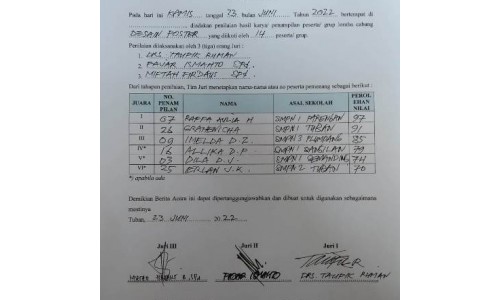 Pada hari ini KAMIS tanggal 23 bulan JUNI Tahun 2022 bertempat di
diadakan penilaian hasil karya/ penampilan peserta/ grup lomba cabang
DESAIN POSTER yang diikuti oleh 14 peserta/ grup.
Penilaian dilaksanakan oleh 3 (tiga) orang Juri :
1. DRS. TAUFIK RUMAN
2. FAJAR ISMANTO SPd.
3. MIFTAH FIRDAUS SPd.
Dari tahapan penilaian, Tim Juri menetapkan nama-nama atau no peserta pemenang sebagai berikut :
JUARA NO. PENAM PILAN NAMA ASAL SEKOLAH PEROL EHAN NILAI
I 07 RAFFA AULIA H SMPN 1 PARENGAN 97
II 26 GRAHENISHA SMPN 1 TUBAN 91
III 09 IMELDA D.Z. SMPN 3 PLUMPANG 85
IV*) 16 ALLIKA D.P. SMPN 1 BANGILAN 79
V*) 03 DILA D.J. SMPN 1 74
VI*) 25 J.K. SMPN 2 TUBAN 70
*) apabila ada
Demikian Berita Acara ini dapat dipertanggungjawabkan dan dibuat untuk digunakan sebagaimana
mestinya
Tuban, 23 JUNI 2022
Juri III Juri II Juri I
FAJAR ISMANTO DRS TAUFIK RUMAN